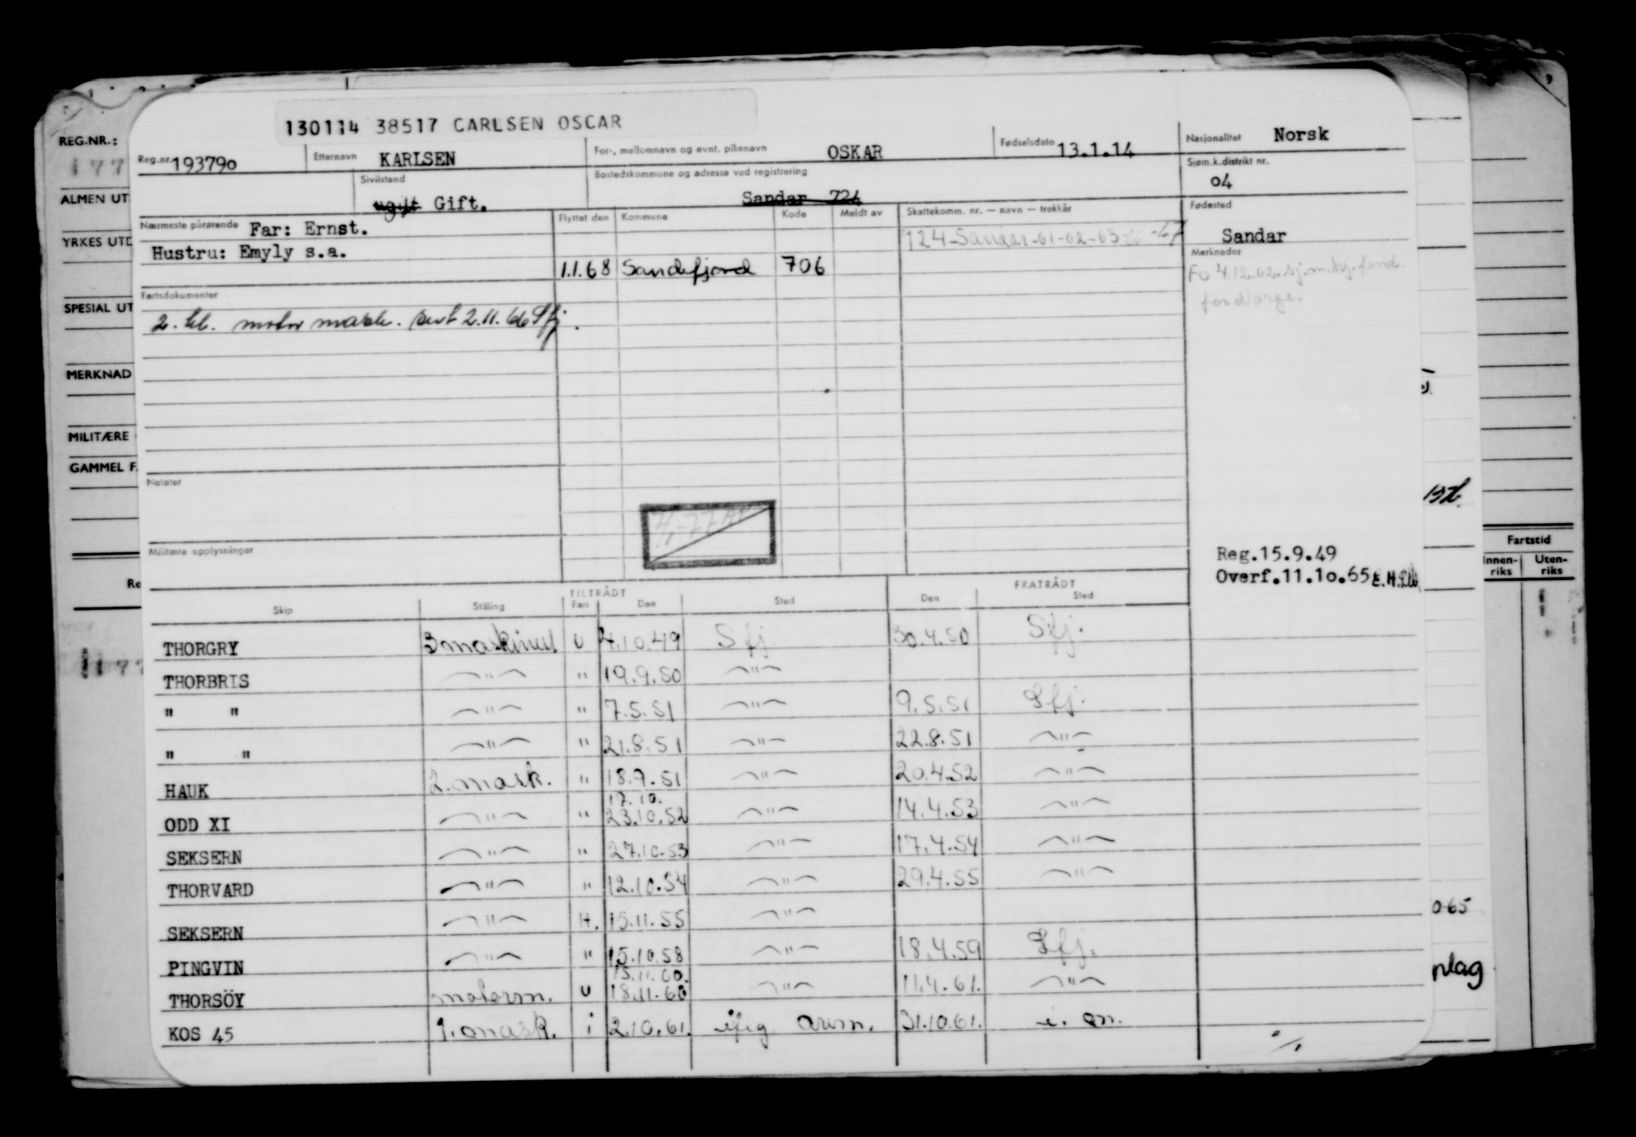 130114 38517 CARLSEN OSCAR
REG.NR.:
177
Reg.nr. 193790 Etternavn KARLSEN For-, mellomnavn og evnt. pikenavn OSKAR Fødselsdato 13.1.14 Nasjonalitet Norsk
Sivilstand ugift Gift. Bostedskommune og adresse ved registrering Sandar 724 Sjøm.k.distrikt nr. 04
ALMEN UT
Nærmeste pårørende Far: Ernst. Flyttet den Kommune Kode Meldt av Skattekomm. nr. — navn — trekkår Fødested Sandar
YRKES UTD
Hustru: Emyly s.a. 124-Sandar-61-62-63 -67
Merknader
1.1.68 Sandefjord 706 Fo 4.12.62. sj.m.hj.fond.
Fartsdokumenter
SPESIAL UT
2. kl. motor mask. 2.11.66 Sfj.
MERKNAD
MILITÆRE
GAMMEL F.
Notater
4-77
Militære opplysninger
Reg.15.9.49
Overf.11.10.65
Fartstid
Innen-riks Uten-riks
TILTRÅDT FRATRÅDT
Skip Stilling Fart Den Sted Den Sted
THORGRY 3 maskinist U 4.10.49 Sfj 30.4.50 Sfj.
THORBRIS —"— " 19.9.50 —"—
" " —"— " 7.5.51 —"— 9.5.51 Sfj.
" " —"— " 21.8.51 —"— 22.8.51 —"—
HAUK 2. mask. " 18.9.51 —"— 20.4.52 —"—
17.10.
ODD XI —"— " 23.10.52 —"— 14.4.53 —"—
SEKSERN —"— " 27.10.53 —"— 17.4.54 —"—
THORVARD —"— " 12.10.54 —"— 29.4.55 —"—
SEKSERN —"— H. 15.11.55 —"—
PINGVIN —"— " 15.10.58 —"— 18.4.59 Sfj.
15.11.60.
THORSÖY motorm. U 18.11.60 —"— 11.4.61. —"—
KOS 45 1. mask. i 2.10.61. 31.10.61.
065
nlag